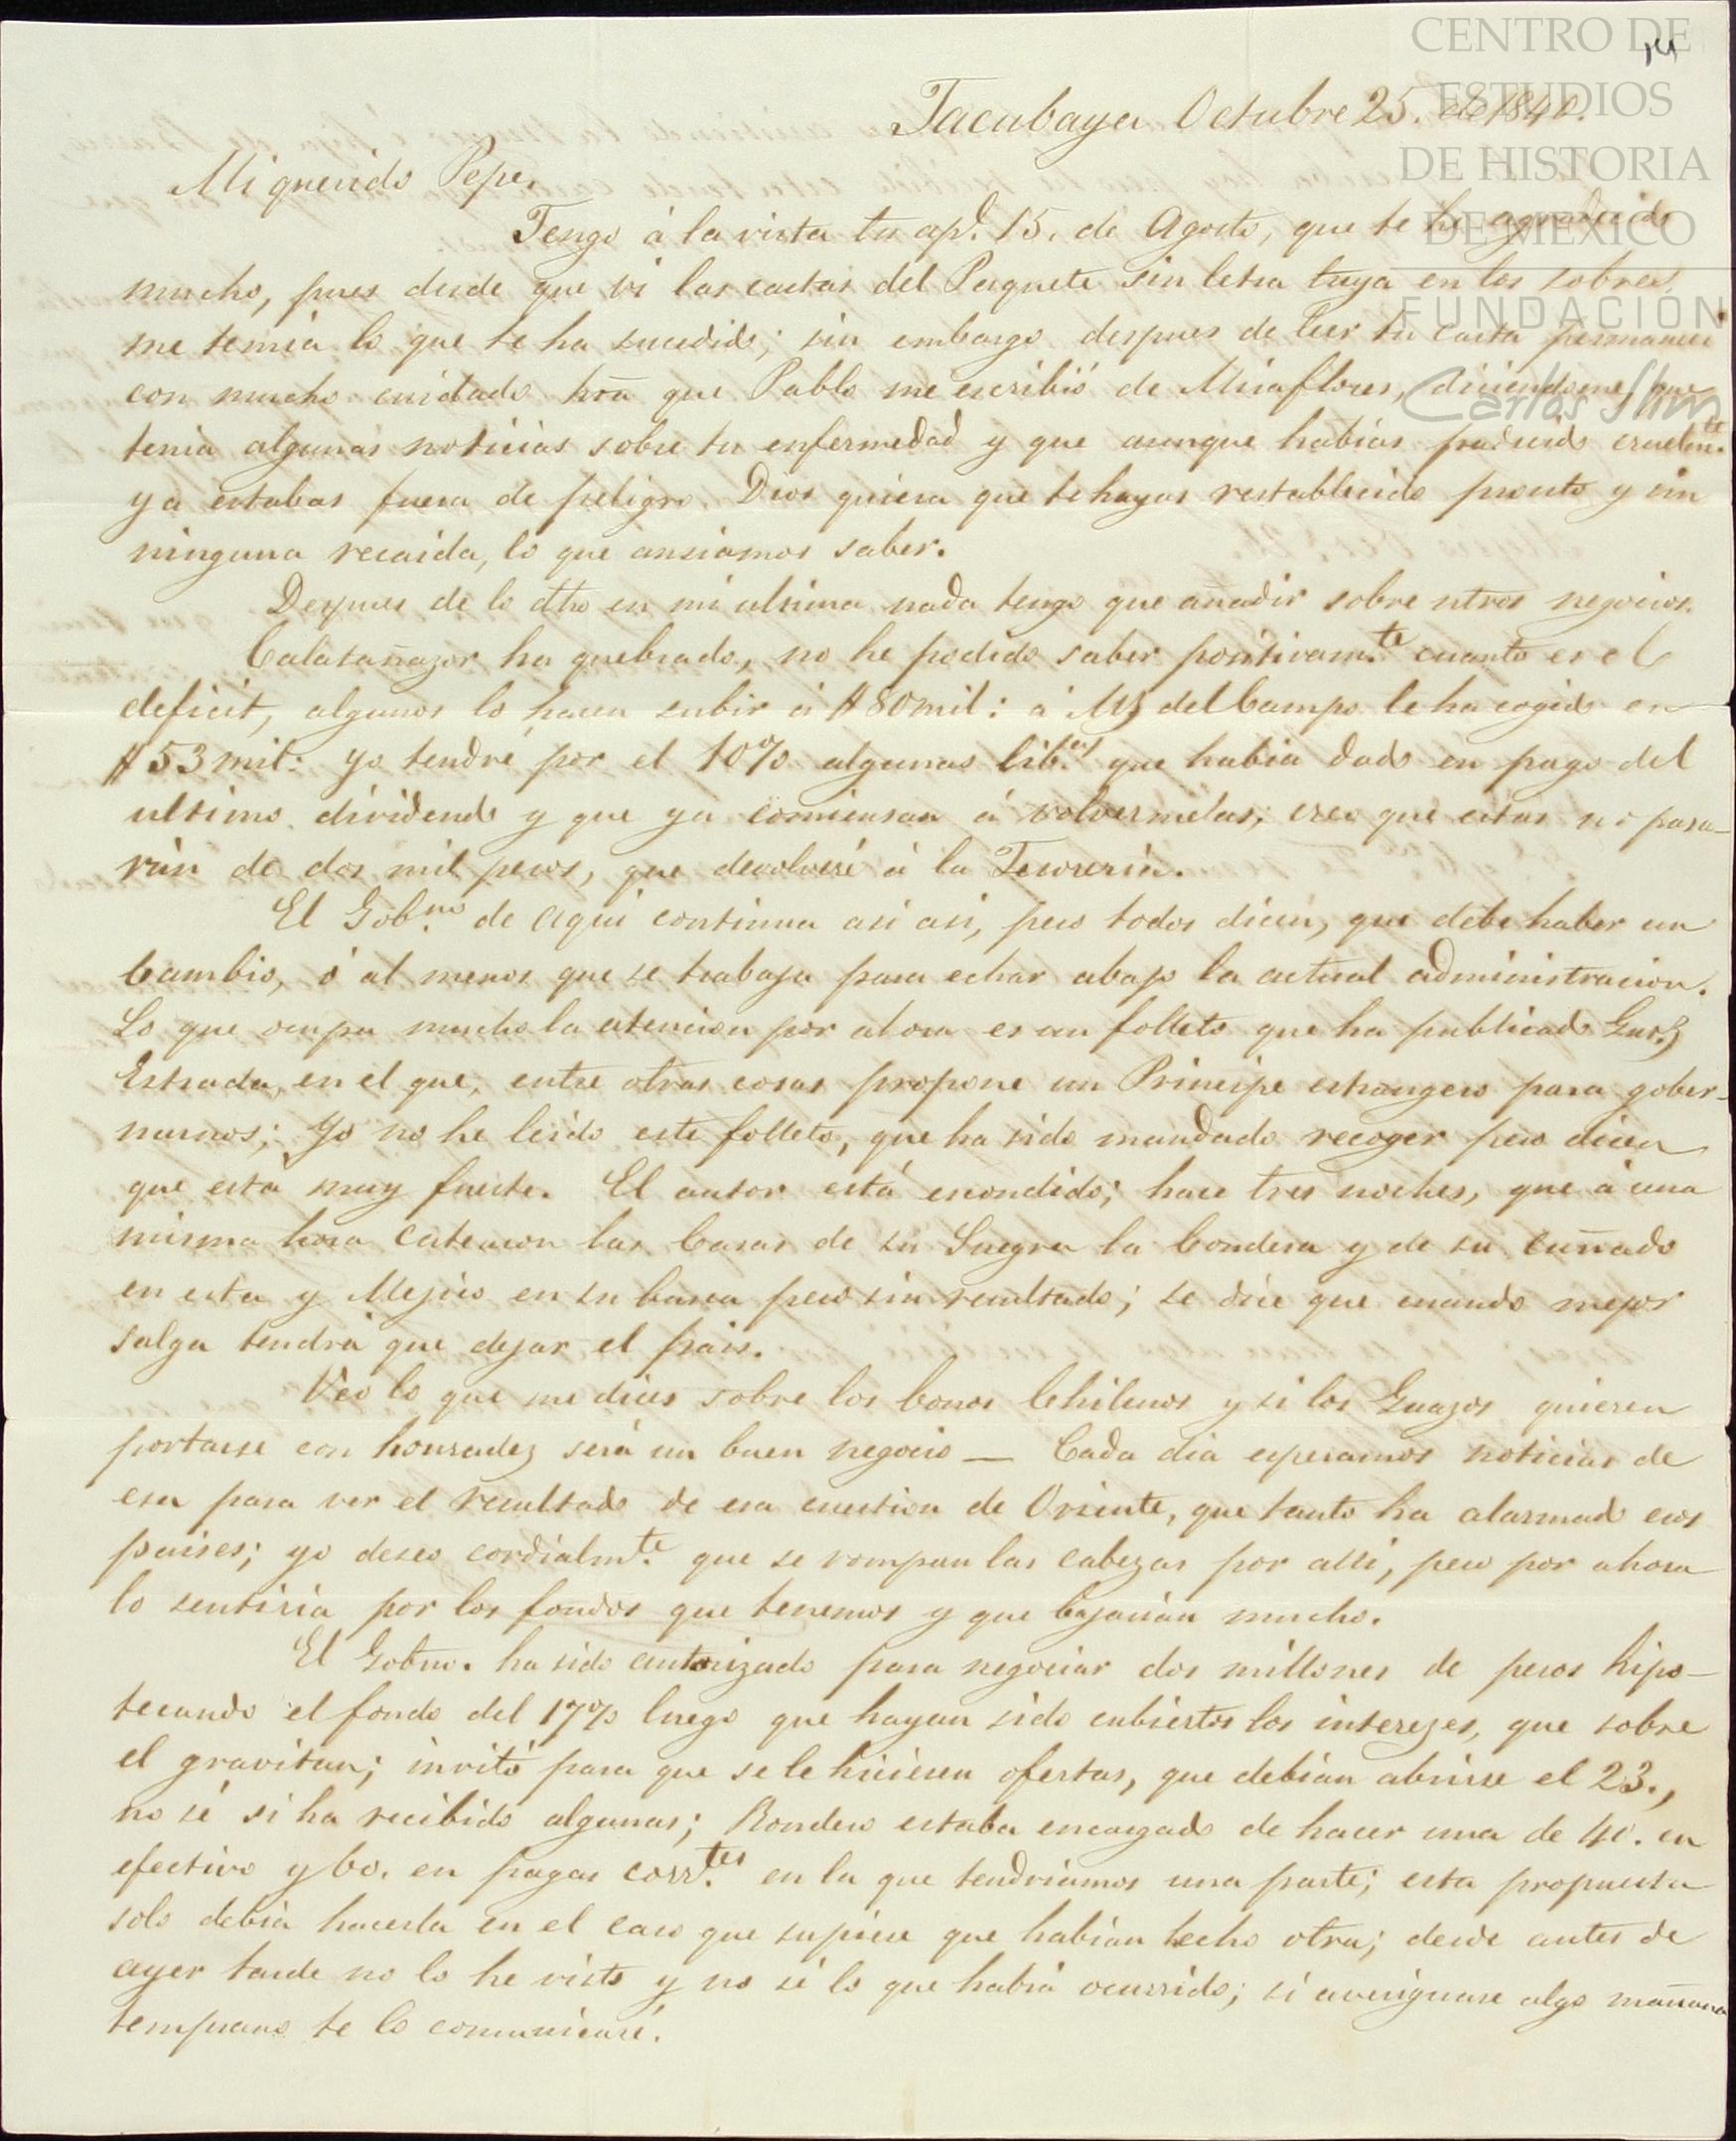 CENTRO DE
ESTUDIOS
DE HISTORIA
DE MÉXICO
FUNDACIÓN
Carlos Slim
Tacubaya Octubre 25. de 1840.
Mi querido Pepe,
Tengo á la vista tu ap.d 15. de Agosto, que te he agradecido
mucho, pues desde que vi las cartas del Paquete sin letra tuya en los sobres,
me temia lo que te ha sucedido; sin embargo despues de leer tu carta permaneci
con mucho cuidado hta que Pablo me escribió de Miraflores, diciendome que
tenia algunas noticias sobre tu enfermedad y que aunque habias padecido cruelm.te
ya estabas fuera de peligro. Dios quiera que te hayas restablecido pronto y sin
ninguna recaida, lo que ansiamos saber.
Despues de lo dho en mi ultima nada tengo que añadir sobre ntros negocios.
Calatañazor ha quebrado, no he podido saber positivam.te cuanto es el
deficit, algunos lo hacen subir á $80 mil: á Mz del Campo le ha cogido en
$53 mil: yo tendré por el 10% algunas lib.es que habia dado en pago del
ultimo dividendo y que ya comiensan á volvermelas; creo que estas no pasa-
rán de dos mil pesos, que devolveré á la Tesoreria.
El Gob.no de aqui continua asi asi, pero todos dicen, que debe haber un
Cambio, ó al menos que se trabaja para echar abajo la actual administracion.
Lo que ocupa mucho la atencion por ahora es un folleto que ha publicado Gut.z
Estrada, en el que, entre otras cosas propone un Principe estrangero para gober-
narnos; yo no he leido este folleto, que ha sido mandado recoger pero dicen
que está muy fuerte. El autor está escondido; hace tres noches, que á una
misma hora catearon las Casas de su Suegra la Condesa y de su cuñado
en esta y Mejico en su busca pero sin resultado; se dice que cuando mejor
salga tendrá que dejar el pais.
Veo lo que me dices sobre los bonos Chilenos y si los Guazos quieren
portarse con honradez será un buen negocio — Cada dia esperamos noticias de
esa para ver el resultado de esa cuestion de Oriente, que tanto ha alarmado esos
paises; yo deseo cordialm.te que se rompan las cabezas por alli, pero por ahora
lo sentiria por los fondos que tenemos y que bajarian mucho.
El Gobno. ha sido autorizado para negociar dos millones de pesos hipo-
tecando el fondo del 17% luego que hayan sido cubiertos los interezes, que sobre
el gravitan; invitó para que se le hiciesen ofertas, que debian abrirse el 23.,
no sé si ha recibido algunas; Rondero estaba encargado de hacer una de 40. en
efectivo y 60. en pagas corr.tes en la que tendriamos una parte; esta propuesta
solo debia hacerla en el caso que supiese que habian hecho otra; desde antes de
ayer tarde no lo he visto y no sé lo que habrá ocurrido; si averiguase algo mañana
temprano te lo comunicaré.